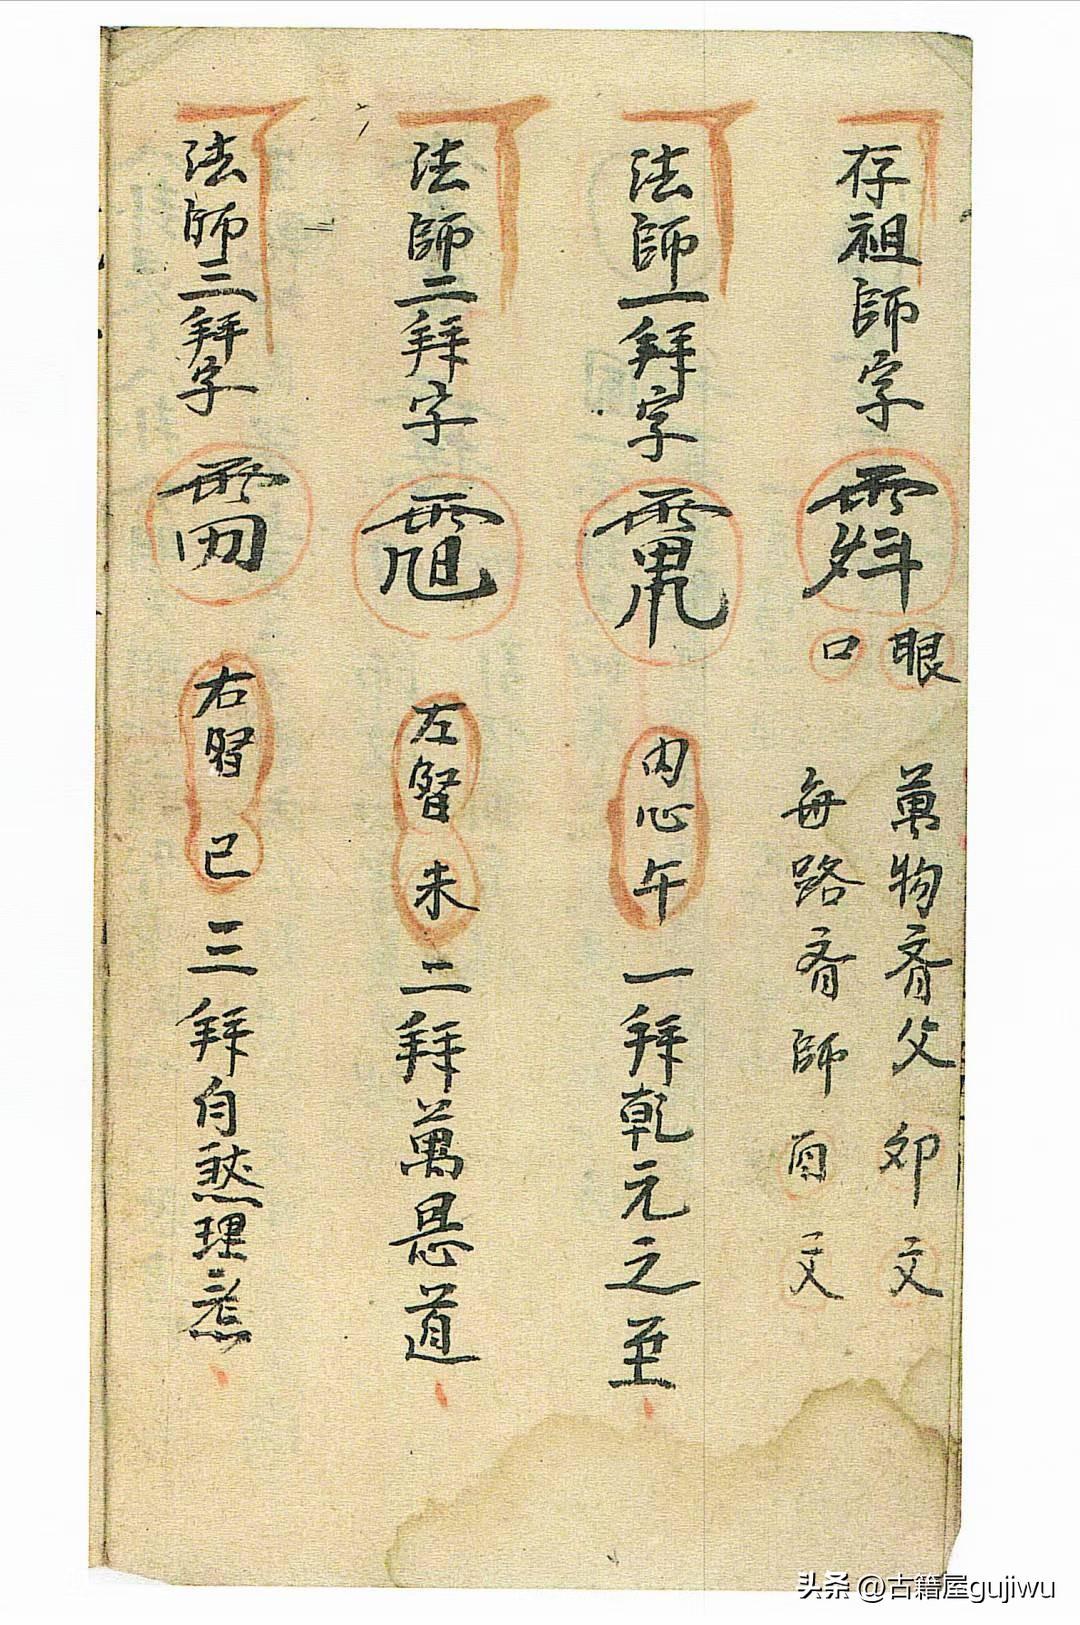 存祖師字
眼 萬物斉父 卯 文
口 每路斉師 酉 文
法師一拜字 内心午 一拜乾元之至
法師二拜字 左腎未 二拜萬恩道
法師三拜字 右腎巳 三拜自然理
头条 @古籍屋gujiwu